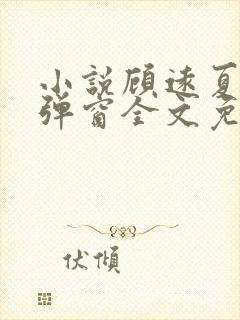 小説顾遠夏
弹窗全文免
伏傾